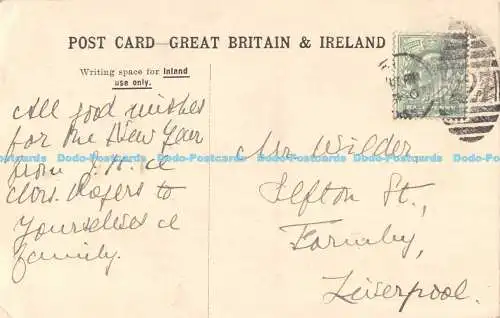 POST CARD—GREAT BRITAIN & IRELAND
Writing space for Inland
use only.
All good wishes
for the New Year
from J. H. &
Mrs. Rogers to
Yourselves &
family.
Mr Wilder
Sefton St.,
Formby,
Liverpool.
Dodo-Postcards Dodo-Postcards Dodo-Postcards Dodo-Postcards Dodo-Postcards Dodo-Postcards